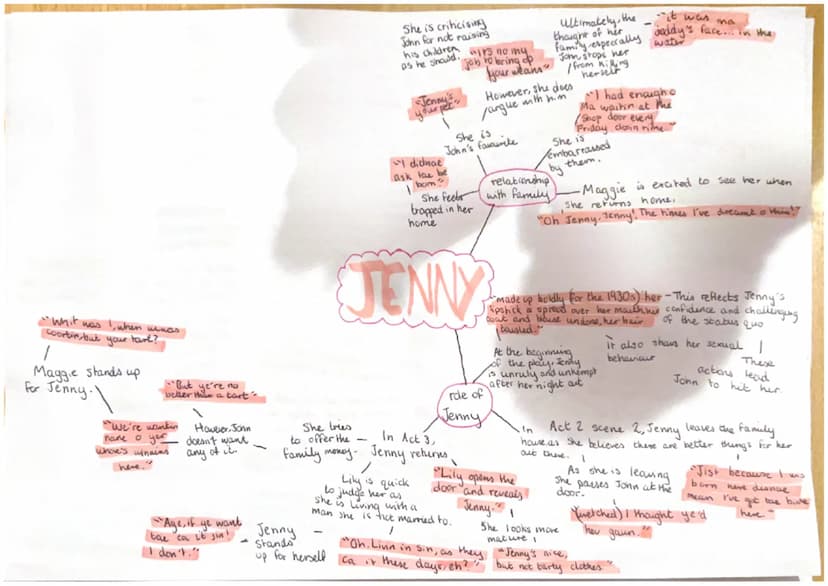 She is criticising
John for not raising
his children
as he should.
"It's no my
job to bring up
your weans"
Ultimately, the
thought of her
family, especially
John stops her
from killing
herself
"it was ma
daddy's face... in the
water"
"Jenny's
your pet"
However, she does
argue with him
She is
John's favourite
"I had enough o
Ma waitin at the
shop door every
Friday
She is
embarrassed
by them.
"I didnae
ask tae be
born"
She feels
trapped in her
home
relationship
with family
Maggie is excited to see her when
she returns home.
"Oh Jenny, Jenny! The times I've dreamt o this!"
JENNY
"made up boldly (for the 1930s) her
lipstick a spread over her mouth, her
coat and blouse undone, her hair
tousled."
This reflects Jenny's
confidence and challenging
of the status quo
It also shows her sexual
behaviour
These
actions lead
John to hit her.
At the beginning
of the play, Jenny
is unruly and unkempt
after her night out
role of
Jenny
In Act 2 scene 2, Jenny leaves the family
house as she believes there are better things for her
out there.
As she is leaving
she passes John at the
door.
(wretched) I thought ye'd
hev gaun."
"Jist because I wis
born here disnae
mean I've got tae bide
here."
In Act 3,
Jenny returns
"Lily opens the
door and reveals
Jenny."
She looks more
mature
"Jenny's nice,
but not tarty clothes."
She tries
to offer the
family money.
However, John
doesn't want
any of it.
"But ye're no
better than a tart"
"We're wantin
nane o yer
whore's winnins
here."
Maggie stands up
for Jenny.
"Whit was I, when
coortin, but your tart?"
Lily is quick
to judge her as
she is living with a
man she is not married to.
"Oh. Livin in sin, as they
ca it these days, eh?"
Jenny
stands
up for herself
"Aye, if ye want
tae ca it sin!
I don't."